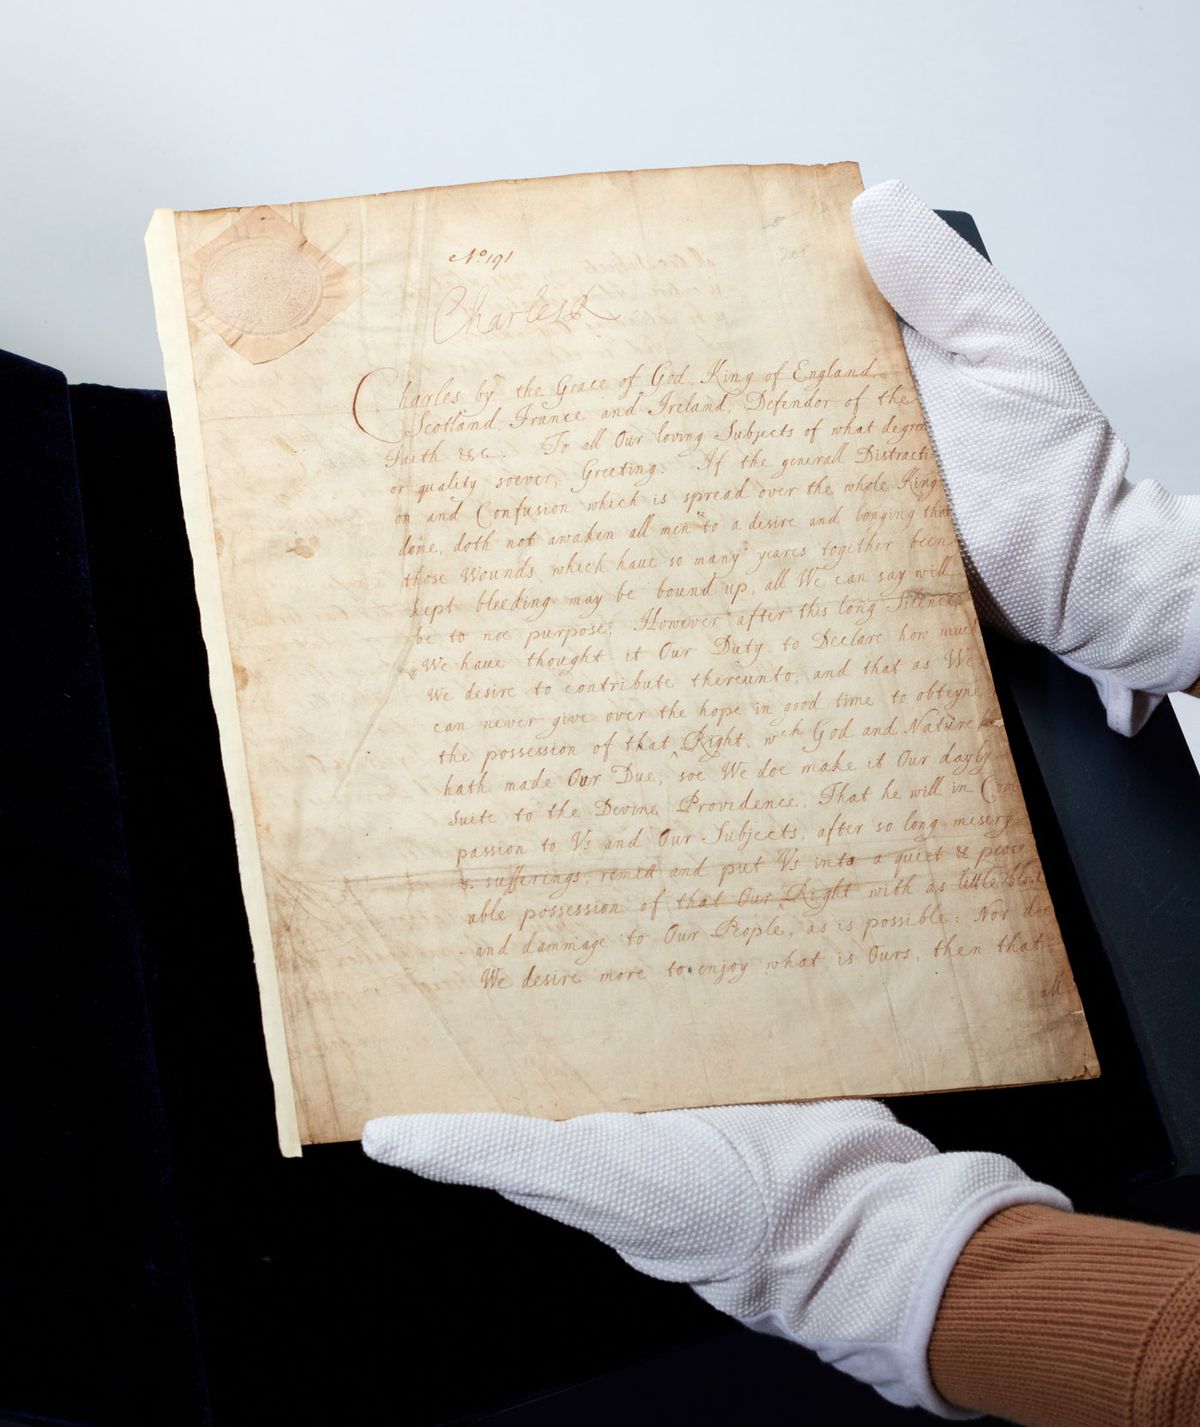 No 191
Charles R
Charles by the Grace of God, King of England,
Scotland, France and Ireland, Defendor of the
Faith &c. To all Our loving Subjects of what degree
or quality soever, Greeting. If the generall Distracti
on and Confusion which is spread over the whole King
dome, doth not awaken all men to a desire and longing that
those Wounds which have so many yeares together been
kept bleeding may be bound up, all We can say will
be to noe purpose; However after this long Silence
We have thought it Our Duty to Declare how much
We desire to contribute thereunto; and that as We
can never give over the hope in good time to obteyne
the possession of that Right, wch God and Nature
hath made Our Due; soe We doe make it Our dayly
Suite to the Devine Providence, That he will in Com
passion to Vs and Our Subjects, after so long misery
& sufferings, remitt and put Vs into a quiet & peace
able possession of that Our Right with as little blood
and dammage to Our People, as is possible: Nor doe
We desire more to enjoy what is Ours, then that
all